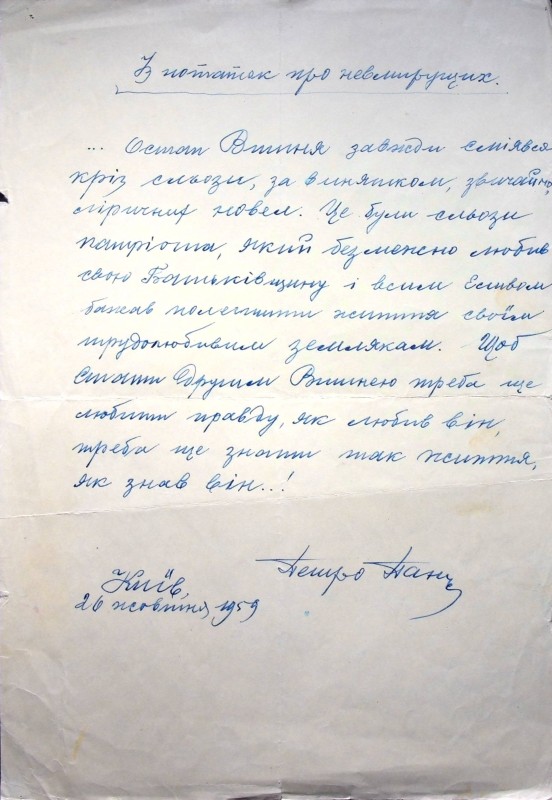 Із нотаток про невмирущих.
... Остап Вишня завжди сміявся
крізь сльози, за винятком, звичайно,
ліричних новел. Це були сльози
патріота, який безмежно любив
свою Батьківщину і всим Єством
бажав полегшити життя своїм
трудолюбивим землякам. Щоб
стати Другим Вишнею треба ще
любити правду, як любив він,
треба ще знати так життя,
як знав він..!
Київ,
26 жовтня, 1959
Петро Панч